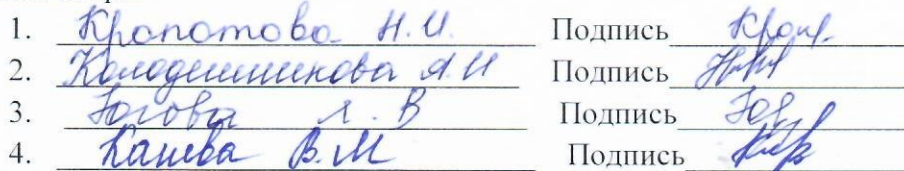 1. Кропотова Н.И. Подпись Кроп.
2. Колодешникова А И Подпись
3. Зогова Л. В Подпись
4. Канева В.М Подпись